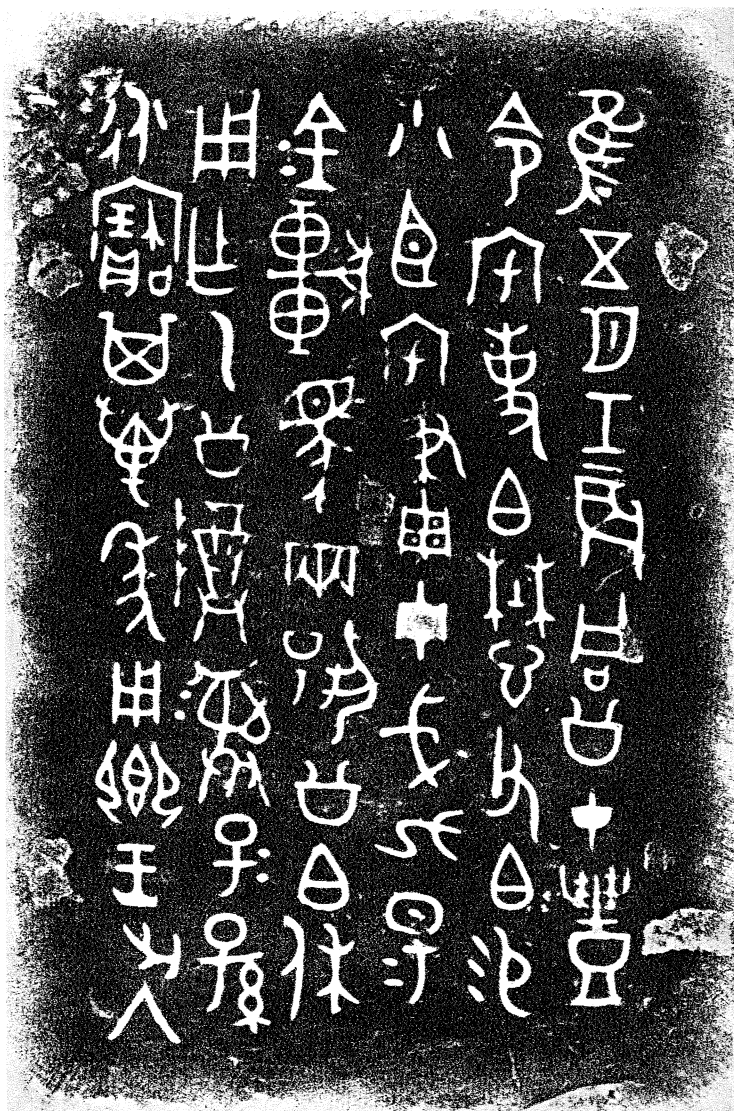 隹五月壬辰同公才豐
令宅事白懋父白易
小臣宅畫干戈九昜
金車馬兩揚公白休
用乍乙公尊彝子子孫
永寶其萬年用鄉王出入